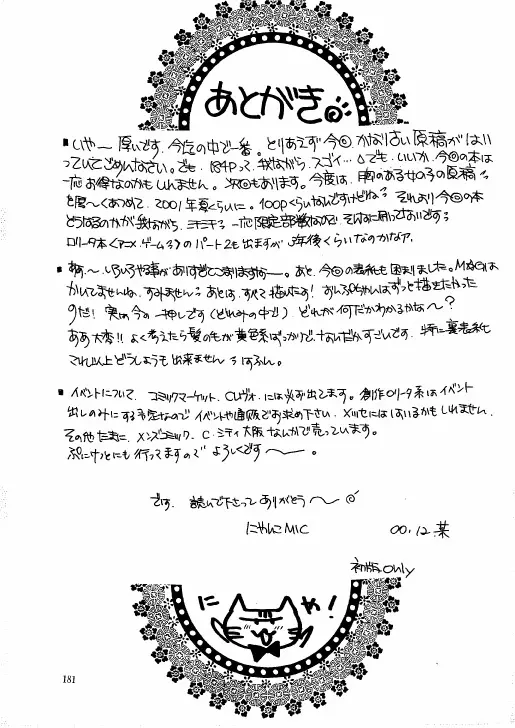 あとがき
■いや〜 厚いです。今迄の中で一番。とりあえず今回かなり古い原稿がはい
っていてごめんなさい。でも、184Pって、我ながら、スゴイ…でも、いいか、今回の本は
一応お得なのかもしれません。次回もあります。今度は、胸のある女の子の原稿
を厚〜くあつめて、2001年夏くらいに。100pくらいなんですけどね。それより今回の本
どうなるのかが我ながら、ドキドキ。一応限定部数なので
ロリータ本<アニメ・ゲーム>のパート2も出ますが、年後くらいなのかなァ。
■あぁ〜、いろいろ事がありすぎてこまりますねー。あと、今回の表紙も困りました。
かいてませんね、すみません。あとは、すべて描いたぞ! おんぷちゃんはずっと描きたかった
のだ! 実は今の一押しです(どれみの中で) どれが何だかわかるかな〜?
ああ大変!! よく考えたら髪の毛が黄色系ばっかりで 特に裏表紙
これ以上どうしようも出来ません。
■イベントについて、コミックマーケット、Cレヴォ、には必ず出てます。創作ロリータ系はイベント
出しのみにする予定なので イベントや通販でお求め下さい、メッセにははいるかもしれません。
その他 たまに、メンズコミック、C.シティ大阪なんかで売っています。
ぷにケットにも行ってますので よろしくです〜。
では、読んで下さって ありがとう〜
にゃんこMIC 00.12.某
初版only
にゃ!
181